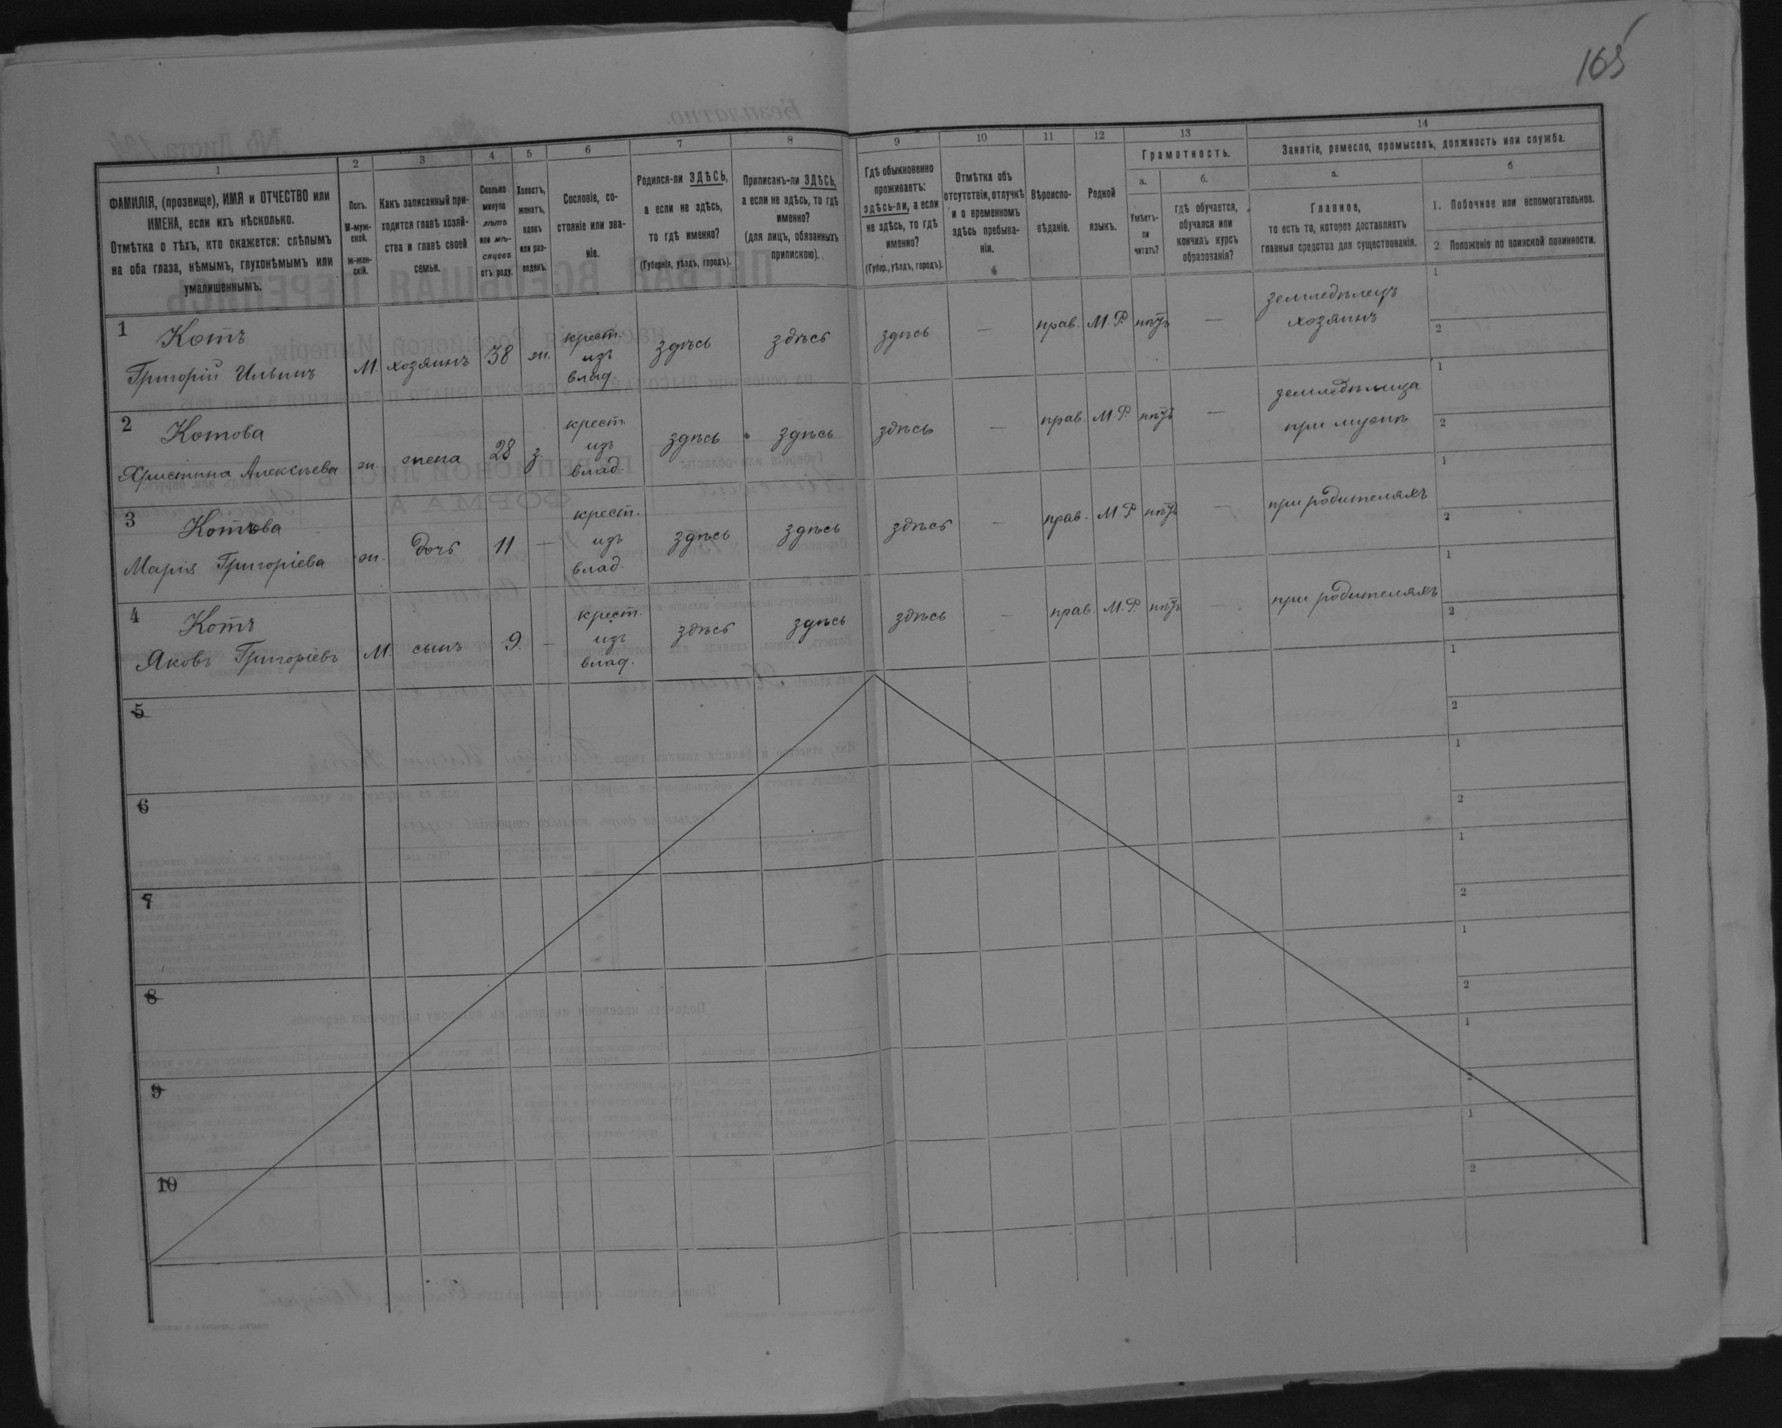 165
1
2
3
4
5
6
7
8
9
10
11
12
13
14
ФАМИЛІЯ, (прозвище), ИМЯ и ОТЧЕСТВО или
ИМЕНА, если ихъ нѣсколько.
Отмѣтка о тѣхъ, кто окажется: слѣпымъ
на оба глаза, нѣмымъ, глухонѣмымъ или
умалишеннымъ.
Полъ.
М-муж-
ской.
Ж-жен-
скій.
Какъ записанный при-
ходится главѣ хозяй-
ства и главѣ своей
семьи.
Сколько
минуло
лѣтъ
или мѣ-
сяцевъ
отъ роду.
Холостъ,
женатъ,
вдовъ
или раз-
веденъ.
Сословіе, со-
стояніе или зва-
ніе.
Родился-ли ЗДѢСЬ,
а если не здѣсь,
то гдѣ именно?
(Губернія, уѣздъ, городъ).
Приписанъ-ли ЗДѢСЬ,
а если не здѣсь, то гдѣ
именно?
(для лицъ, обязанныхъ
припискою).
Гдѣ обыкновенно
проживаетъ:
здѣсь-ли, а если
не здѣсь, то гдѣ
именно?
(Губер., уѣздъ, городъ).
Отмѣтка объ
отсутствіи, отлучкѣ
и о временномъ
здѣсь пребыва-
ніи.
Вѣроиспо-
вѣданіе.
Родной
языкъ.
Грамотность.
а.
Умѣетъ-
ли
читать?
б.
гдѣ обучается,
обучался или
кончилъ курсъ
образованія?
Занятіе, ремесло, промыселъ, должность или служба.
а.
Главное,
то есть то, которое доставляетъ
главныя средства для существованія.
б
1. Побочное или вспомогательное.
2 Положеніе по воинской повинности.
1
Котъ
Григорій Ильинъ
М.
хозяинъ
38
ж.
крест.
изъ
влад.
здѣсь
здѣсь
здѣсь
—
прав.
М. Р.
нѣтъ
—
земледѣлецъ
хозяинъ
1
2
2
Котова
Христина Алексѣева
ж.
жена
28
з.
крест.
изъ
влад.
здѣсь
здѣсь
здѣсь
—
прав.
М. Р.
нѣтъ
—
земледѣлица
при мужѣ
1
2
3
Котова
Марія Григоріева
ж.
дочь
11
—
крест.
изъ
влад.
здѣсь
здѣсь
здѣсь
—
прав.
М. Р.
нѣтъ
—
при родителяхъ
1
2
4
Котъ
Яковъ Григоріевъ
М.
сынъ
9.
—
крест.
изъ
влад.
здѣсь
здѣсь
здѣсь
—
прав.
М. Р.
нѣтъ
—
при родителяхъ
1
2
5
1
2
6
1
2
7
1
2
8
1
2
9
1
2
10
1
2